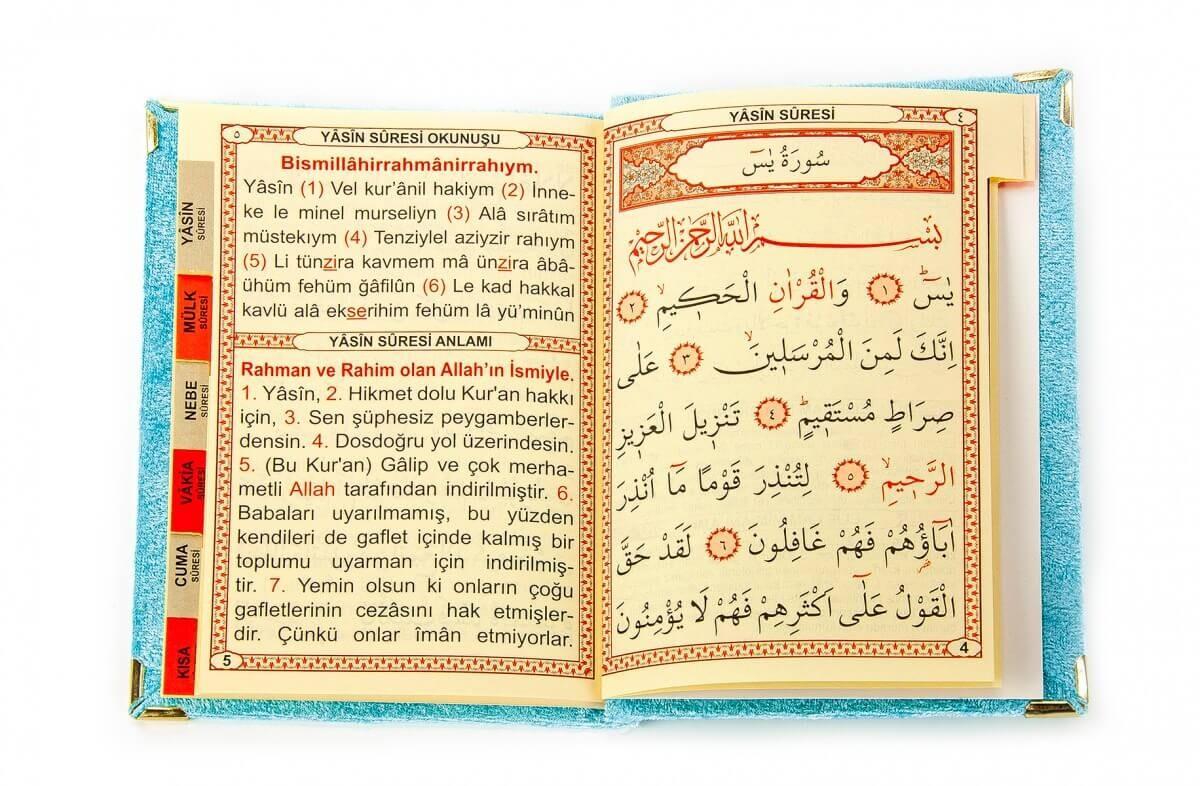 YÂSÎN SÛRESİ
٤
سُورَةُ يٰسٓ
بِسْمِ اللّٰهِ الرَّحْمٰنِ الرَّحٖيمِ
يٰسٓۜ ﴿١﴾ وَالْقُرْاٰنِ الْحَكٖيمِۙ ﴿٢﴾
اِنَّكَ لَمِنَ الْمُرْسَلٖينَۙ ﴿٣﴾ عَلٰى
صِرَاطٍ مُسْتَقٖيمٍۜ ﴿٤﴾ تَنْزٖيلَ الْعَزٖيزِ
الرَّحٖيمِۙ ﴿٥﴾ لِتُنْذِرَ قَوْمًا مَٓا اُنْذِرَ
اٰبَٓاؤُ۬هُمْ فَهُمْ غَافِلُونَ ﴿٦﴾ لَقَدْ حَقَّ
الْقَوْلُ عَلٰٓى اَكْثَرِهِمْ فَهُمْ لَا يُؤْمِنُونَ
4
٥
YÂSÎN SÛRESİ OKUNUŞU
Bismillâhirrahmânirrahıym.
Yâsîn (1) Vel kur’ânil hakiym (2) İnne-
ke le minel murseliyn (3) Alâ sırâtım
müstekıym (4) Tenziylel aziyzir rahıym
(5) Li tünzira kavmem mâ ünzira âbâ-
ühüm fehüm ğâfilûn (6) Le kad hakkal
kavlü alâ ekserihim fehüm lâ yü’minûn
YÂSÎN SÛRESİ ANLAMI
Rahman ve Rahim olan Allah’ın İsmiyle.
1. Yâsîn, 2. Hikmet dolu Kur'an hakkı
için, 3. Sen şüphesiz peygamberler-
densin. 4. Dosdoğru yol üzerindesin.
5. (Bu Kur'an) Gâlip ve çok merha-
metli Allah tarafından indirilmiştir. 6.
Babaları uyarılmamış, bu yüzden
kendileri de gaflet içinde kalmış bir
toplumu uyarman için indirilmiş-
tir. 7. Yemin olsun ki onların çoğu
gafletlerinin cezâsını hak etmişler-
dir. Çünkü onlar îmân etmiyorlar.
5
YÂSÎN
SÛRESİ
MÜLK
SÛRESİ
NEBE
SÛRESİ
VÂKIA
SÛRESİ
CUMA
SÛRESİ
KISA